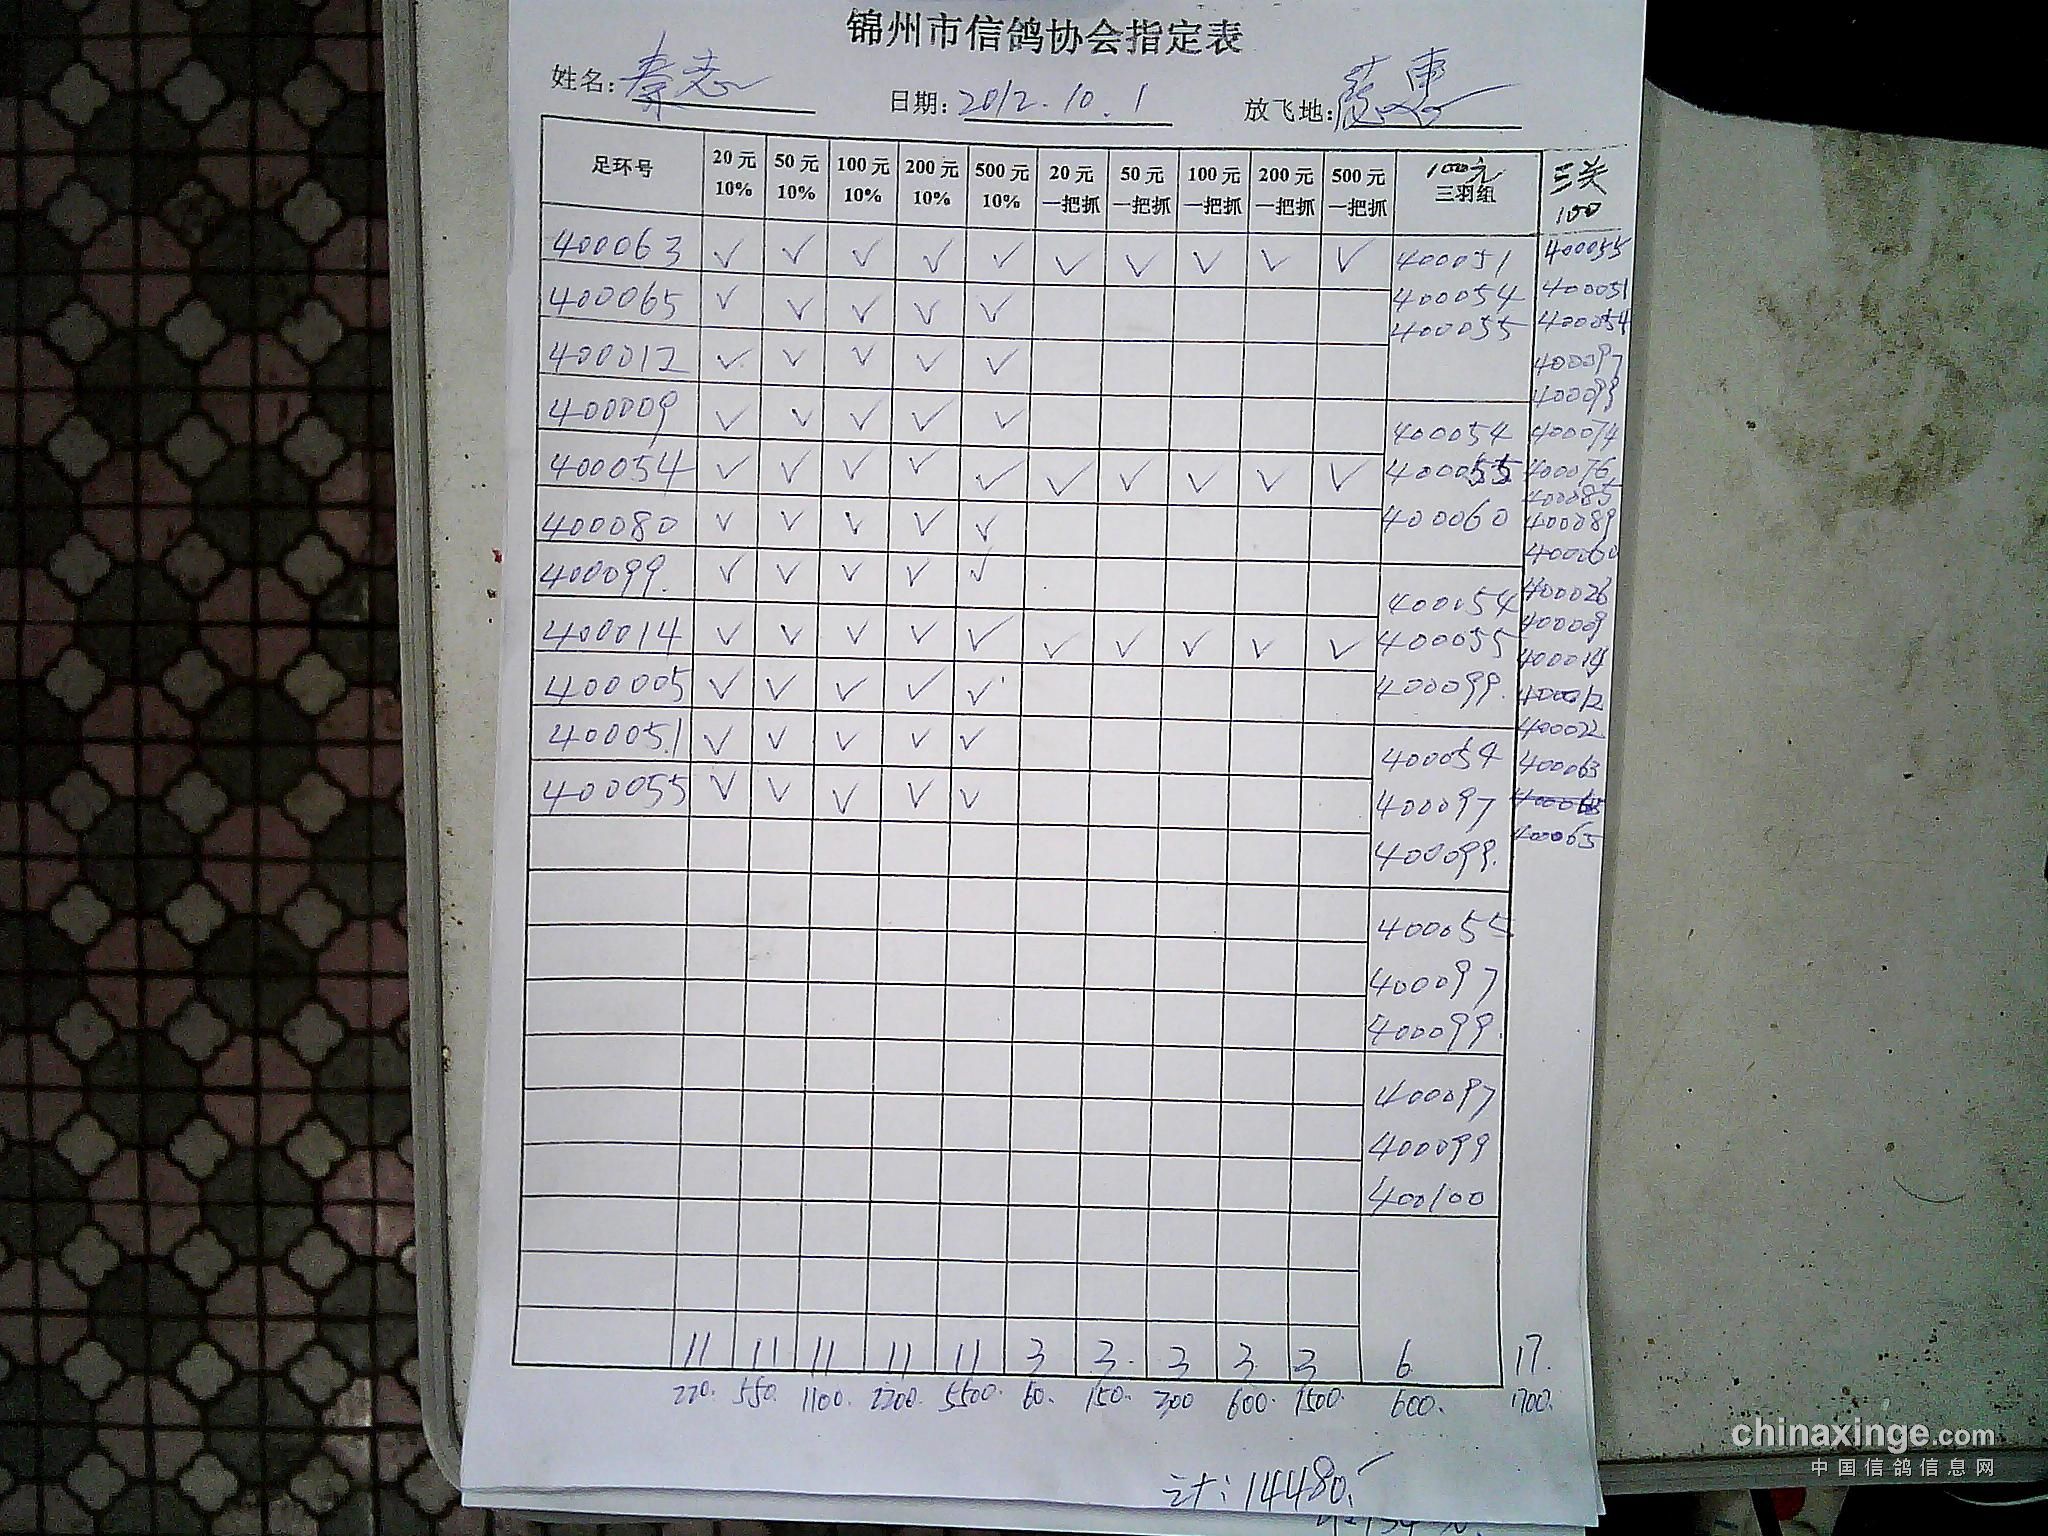 锦州市信鸽协会指定表
姓名: 秦志 日期: 2012.10.1 放飞地:
足环号 20元 10% 50元 10% 100元 10% 200元 10% 500元 10% 20元 一把抓 50元 一把抓 100元 一把抓 200元 一把抓 500元 一把抓 100元 三羽组 三关 100
400063 √ √ √ √ √ √ √ √ √ √
400065 √ √ √ √ √
400012 √ √ √ √ √
400009 √ √ √ √ √
400054 √ √ √ √ √ √ √ √ √ √
400080 √ √ √ √ √
400099. √ √ √ √ √
400014 √ √ √ √ √ √ √ √ √ √
400005 √ √ √ √ √
400051 √ √ √ √ √
400055 √ √ √ √ √
400051
400054
400055
400054
400055
400060
400054
400055
400099.
400054
400097
400099.
400055
400097
400099.
400097
400099
400100
400055
400051
400054
400097
400099
400074
400076
400085
400089
400060
400026
400009
400014
400012
400022
400063
400065
11 11 11 11 11 3 3. 3 3 3 6 17.
220. 550. 1100. 2200. 5500. 60. 150. 300 600. 1500. 600. 1700.
计: 14480.
chinaxinge.com
中国信鸽信息网